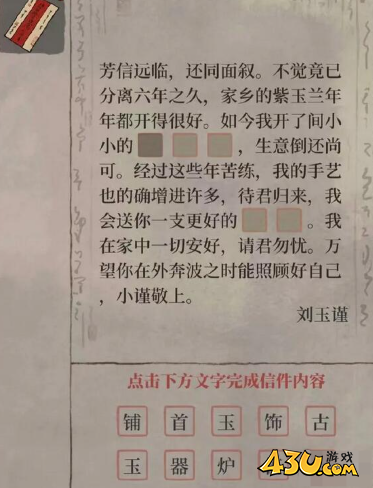 芳信远临，还同面叙。不觉竟已
分离六年之久，家乡的紫玉兰年
年都开得很好。如今我开了间小
小的，生意倒还尚
可。经过这些年苦练，我的手艺
也的确增进许多，待君归来，我
会送你一支更好的。我
在家中一切安好，请君勿忧。万
望你在外奔波之时能照顾好自己
，小谨敬上。
刘玉谨
点击下方文字完成信件内容
铺首玉饰古
玉器炉
43U.com
游戏